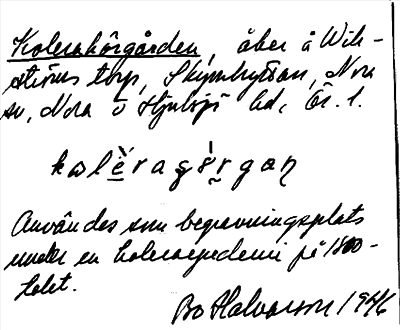 Kolerakörgården, åker å Wik-
ströms torp, Skymhyttan, Nora
sn, Nora o Hjulsjö bd, Ör. l.
kolèragǫ̈rgan
Användes som begravningsplats
under en koleraepedemi på 1800-
talet.
Bo Halvarson 1946